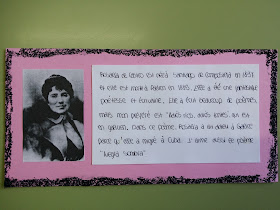 Rosalía de Castro est née à Santiago de Compostela en 1837
et elle est morte à Padrón en 1885. Elle a été une
poétesse et écrivaine. Elle a fait beaucoup de poèmes,
mais mon préféré est "Adiós ríos, adiós fontes", qui est
en galicien. Dans ce poème, Rosalía a dit
parce qu'elle a émigré à Cuba. J'aime aussi ce poème
"Negra Sombra"